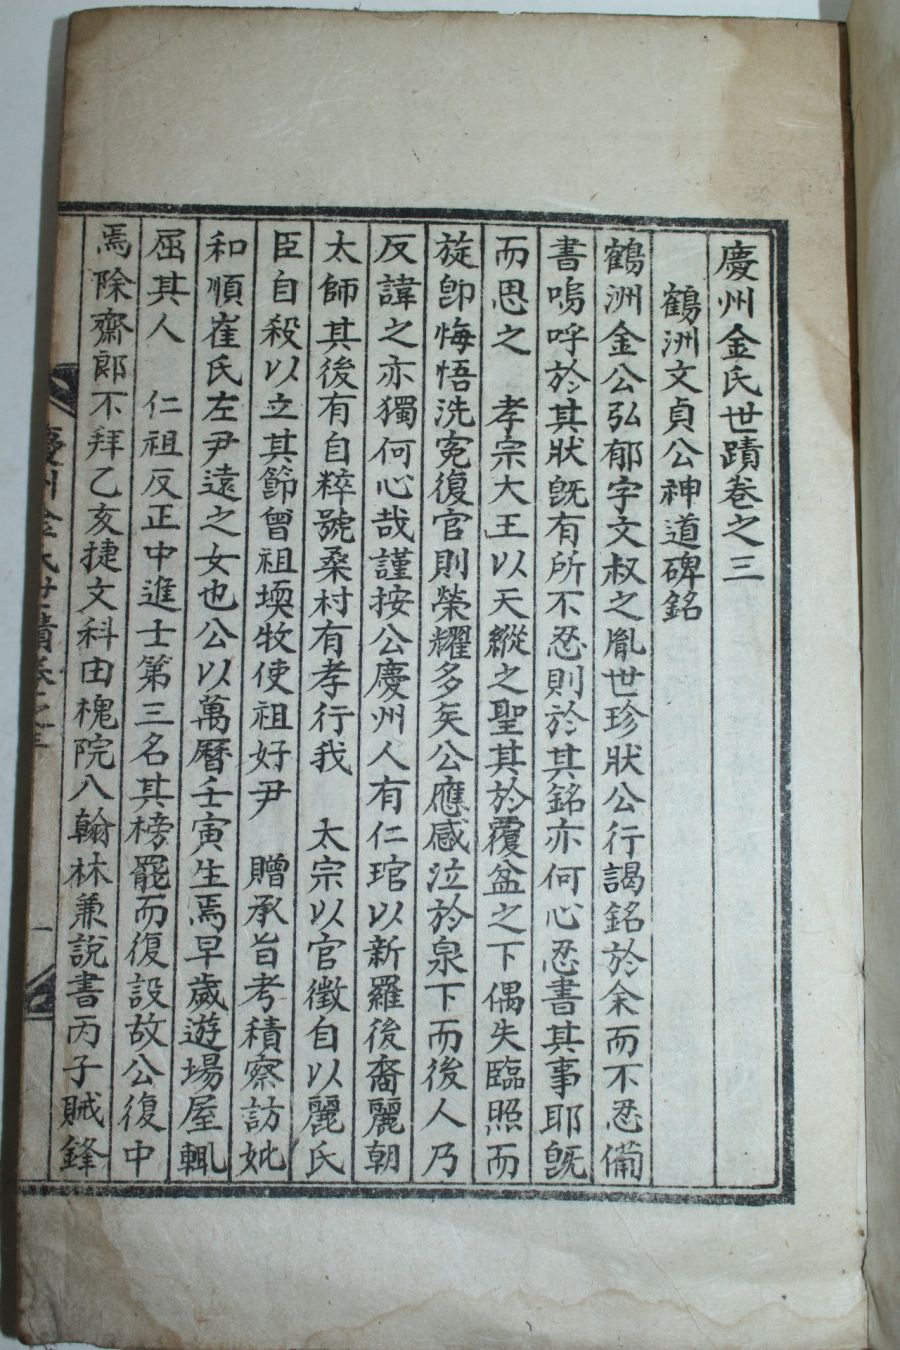 慶州金氏世蹟卷之三
鶴洲文貞公神道碑銘
鶴洲金公弘郁字文叔之胤世珍狀公行謁銘於余而不忍備
書嗚呼於其狀旣有所不忍則於其銘亦何心忍書其事耶旣
而思之 孝宗大王以天縱之聖其於覆盆之下偶失臨照而
旋卽悔悟洗冤復官則榮耀多矣公應感泣於泉下而後人乃
反諱之亦獨何心哉謹按公慶州人有仁琯以新羅後裔麗朝
太師其後有自粹號桑村有孝行我 太宗以官徵自以麗氏
臣自殺以立其節曾祖堧牧使祖好尹 贈承旨考積察訪妣
和順崔氏左尹遠之女也公以萬曆壬寅生焉早歲遊場屋輒
屈其人 仁祖反正中進士第三名其榜罷而復設故公復中
焉除齋郞不拜乙亥捷文科由槐院入翰林兼說書丙子賊鋒
慶州金氏世蹟卷之三 一